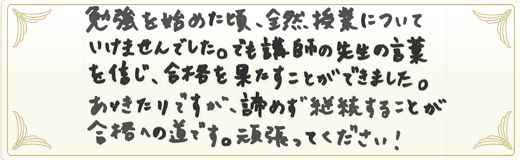 勉強を始めた頃、全然、授業について
いけませんでした。でも講師の先生の言葉
を信じ、合格を果たすことができました。
ありきたりですが、諦めず継続することが
合格への道です。頑張ってください!